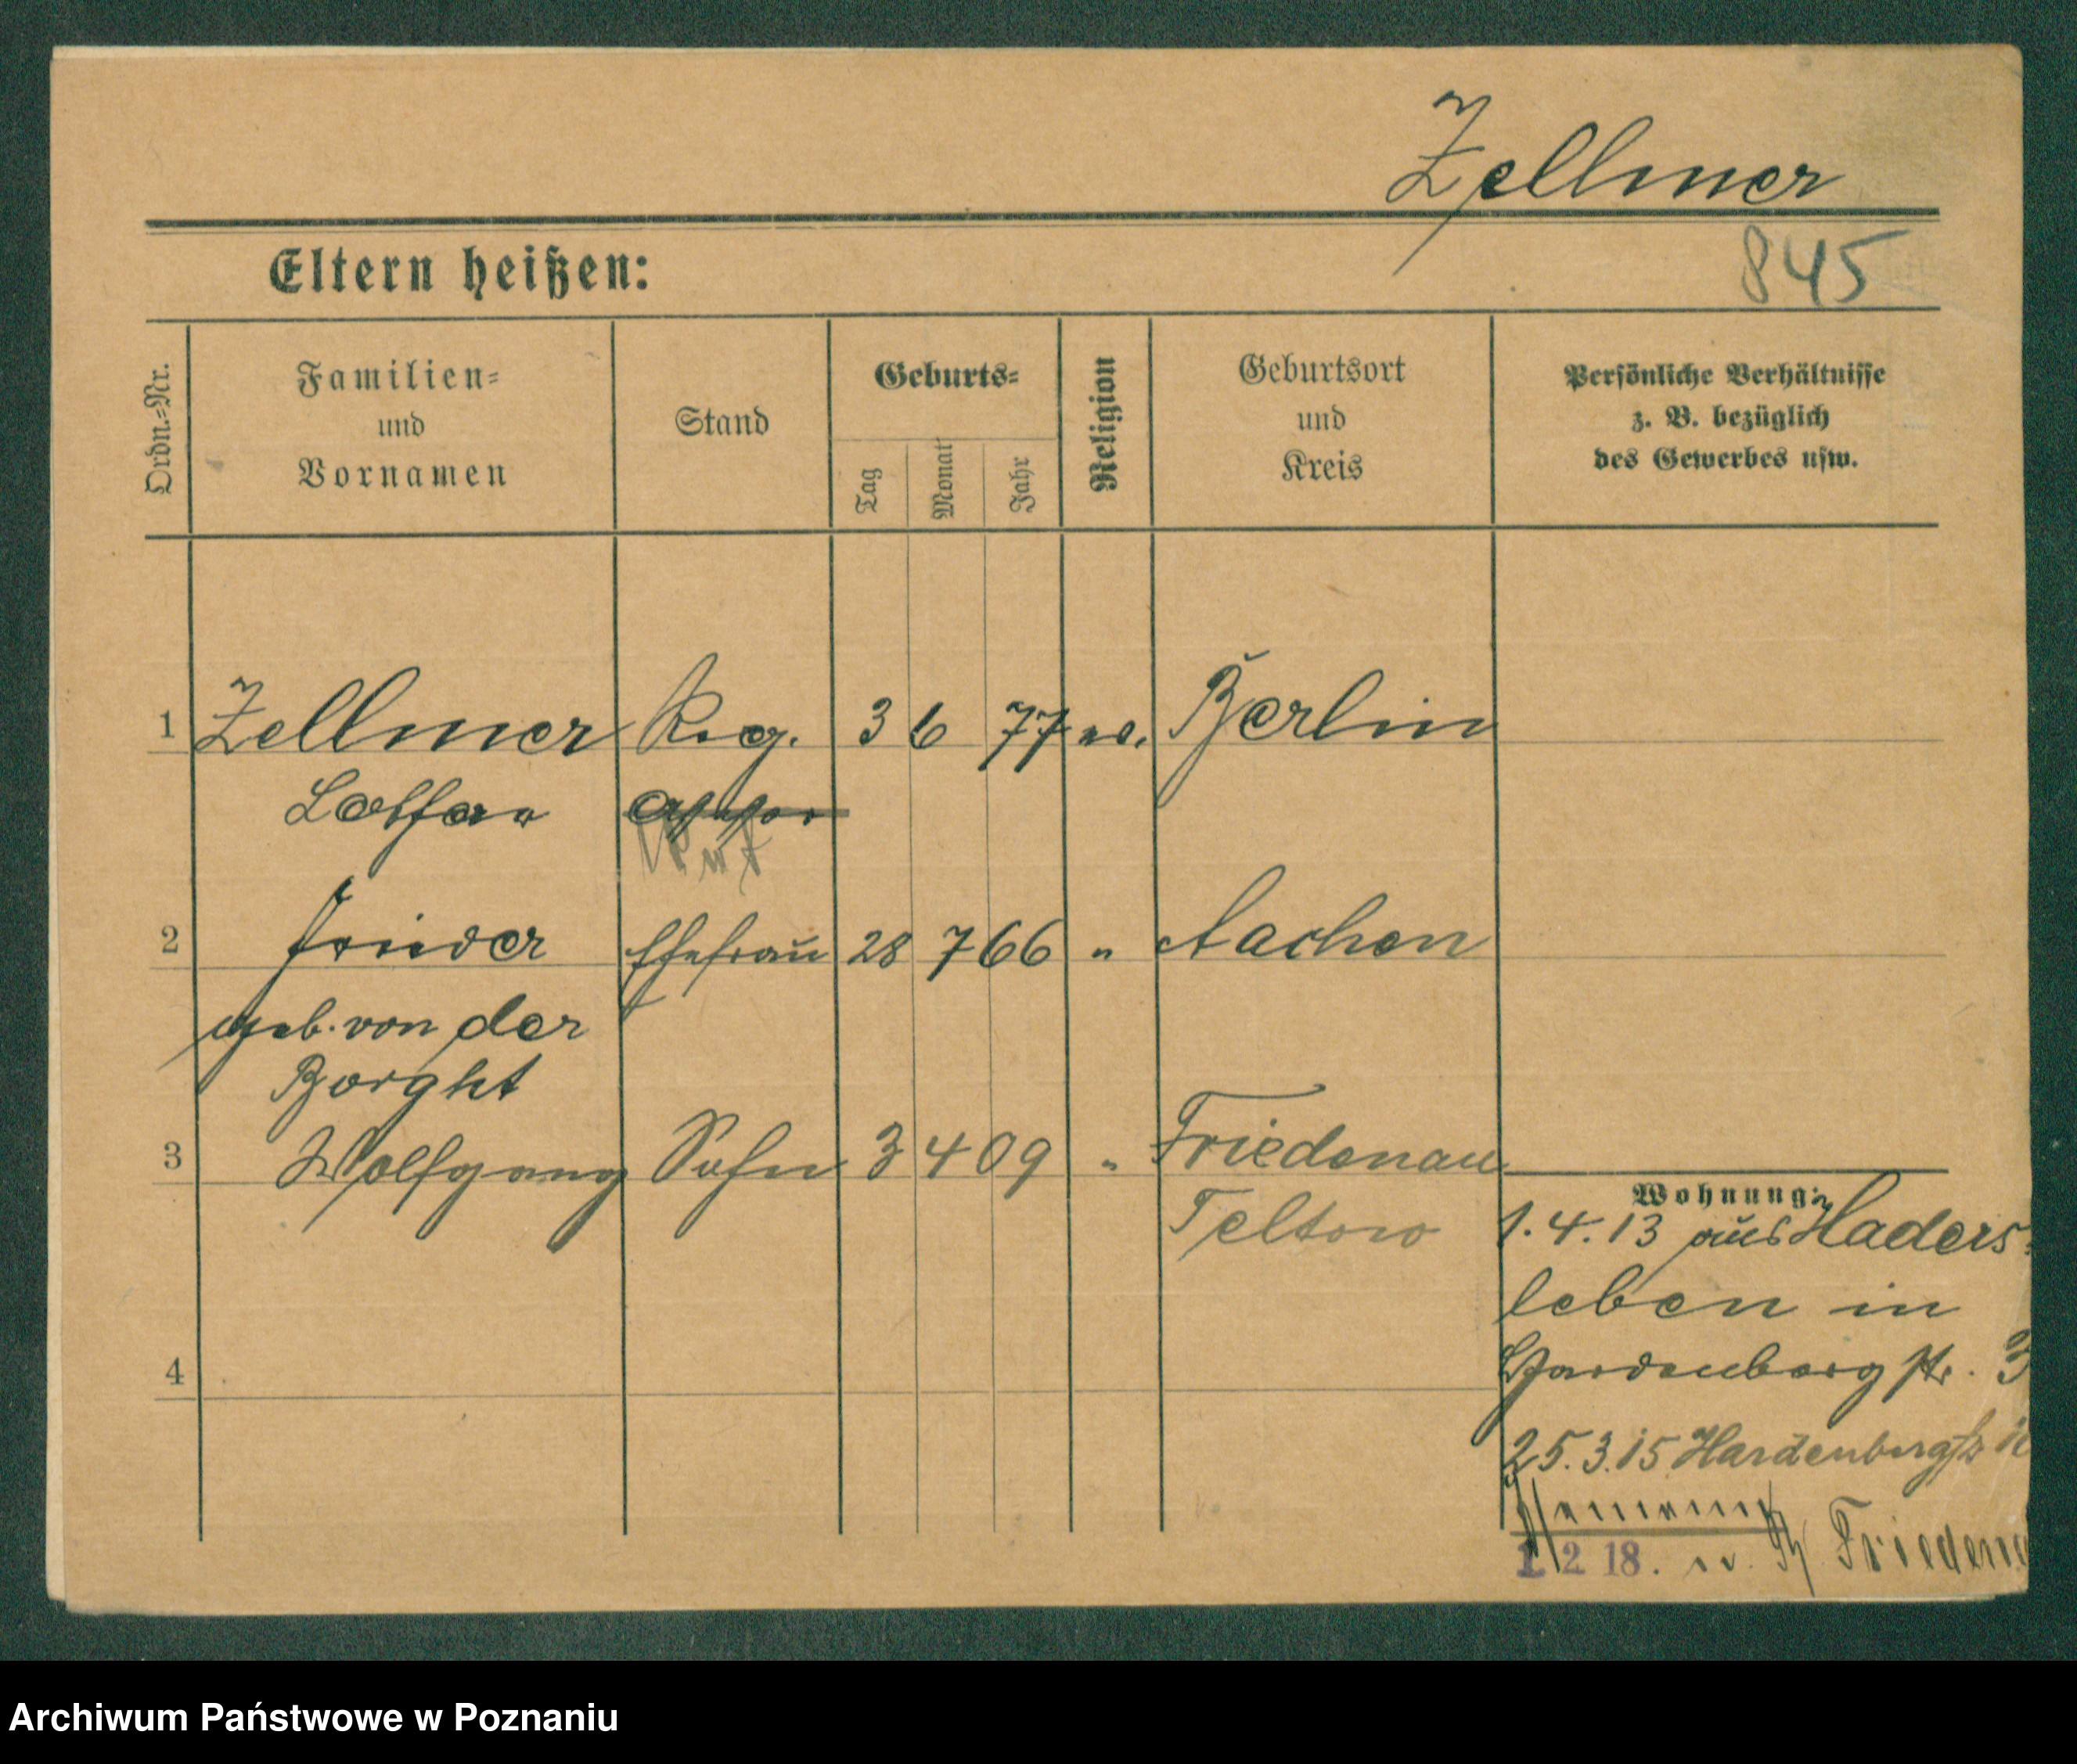 Zellmer
845
Eltern heißen:
Ordn.-Nr.
Familien-
und
Vornamen
Stand
Geburts-
Tag
Monat
Jahr
Religion
Geburtsort
und
Kreis
Persönliche Verhältnisse
z. B. bezüglich
des Gewerbes usw.
1 Zellmer Reg. 3 6 77 ev. Berlin
Lothar Assessor
Rat
2 geb. von der Ehefrau 28 7 66 " Aachen
Borght
3 Wolfgang Sohn 3 4 09 " Friedenau
Teltow
4
Wohnung:
1.4.13 aus Haders-
leben in
Hardenbergstr. 3
25.3.15 Hardenbergstr
1 2 18. n. Friedena
Archiwum Państwowe w Poznaniu